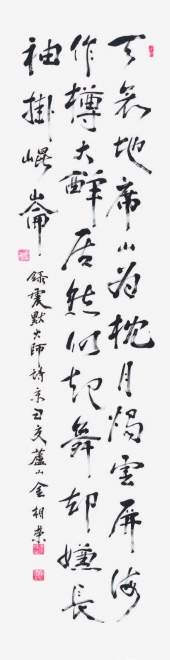 天衾地席山为枕月燭雲屏海
作樽大醉居然仍起舞却嫌長
袖掛崐崙
錄震默大師詩 辛丑夏 蘆山 金相榮